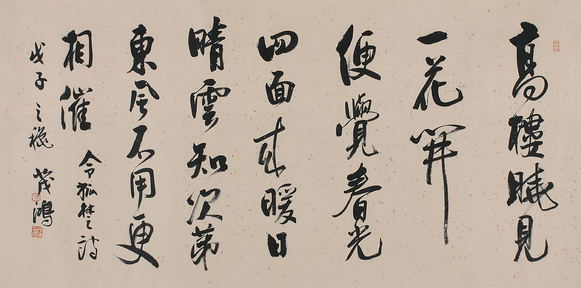 高樓曉見
一花開
便覺春光
四面来暖日
晴雲知次第
東風不用更
相催
令狐楚詩
戊子之穐 茂鴻